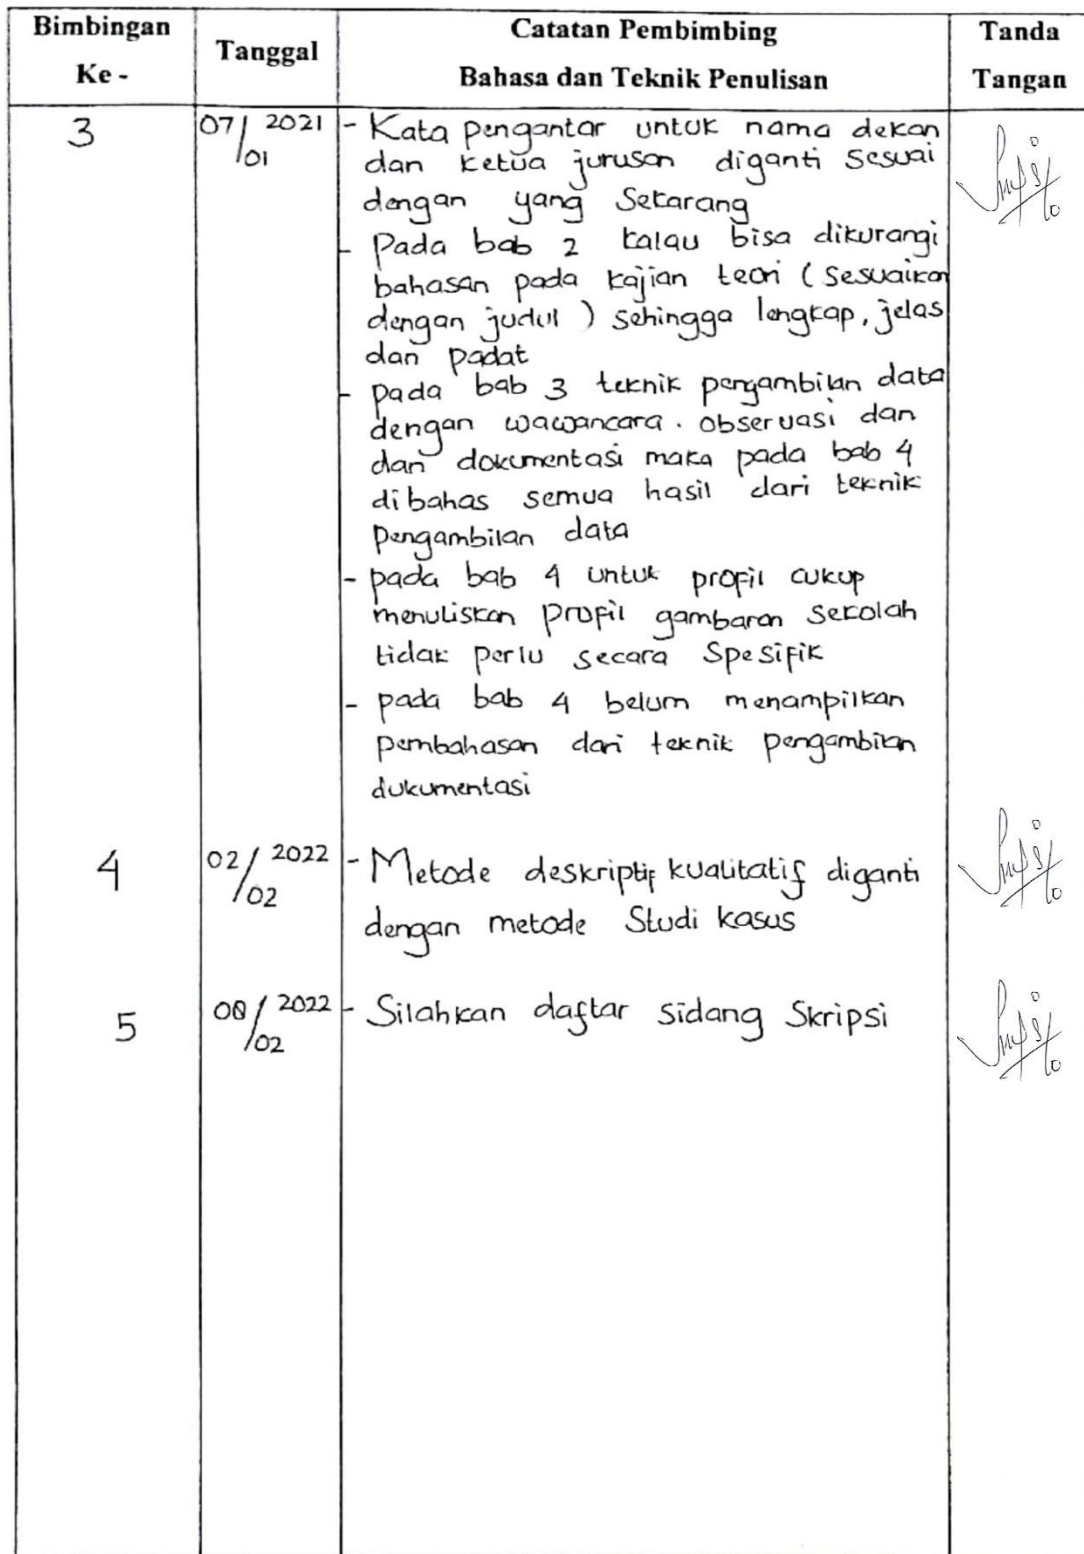 Bimbingan Ke -
Tanggal
Catatan Pembimbing
Bahasa dan Teknik Penulisan
Tanda Tangan
3
07/01 2021
- Kata pengantar untuk nama dekan
dan ketua jurusan diganti sesuai
dengan yang Sekarang
- Pada bab 2 kalau bisa dikurangi
bahasan pada kajian teori (Sesuaikan
dengan judul) sehingga lengkap, jelas
dan padat
- pada bab 3 teknik pengambilan data
dengan wawancara. observasi dan
dan dokumentasi maka pada bab 4
dibahas semua hasil dari teknik
pengambilan data
- pada bab 4 untuk profil cukup
menuliskan profil gambaran sekolah
tidak perlu secara Spesifik
- pada bab 4 belum menampilkan
pembahasan dari teknik pengambilan
dukumentasi
4
02/02 2022
- Metode deskriptif kualitatif diganti
dengan metode Studi kasus
5
/02 2022
- Silahkan daftar sidang Skripsi